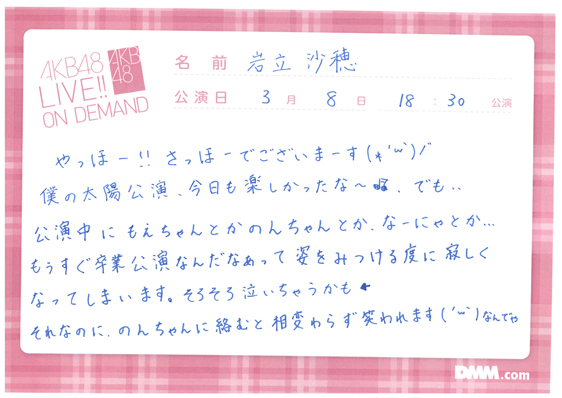 AKB48
LIVE!!
ON DEMAND
AKB
48
名前 岩立 沙穂
公演日 3月 8日 18:30 公演
やっほー!! さっほーでございまーす(*'ω`)ノ゙
僕の太陽公演、今日も楽しかったな〜 、でも‥
公演中にもえちゃんとかのんちゃんとか、なーにゃとか…
もうすぐ卒業公演なんだなあって姿をみつける度に寂しく
なってしまいます。そろそろ泣いちゃうかも
それなのに、のんちゃんに絡むと相変わらず笑われます('ω`)なんでや
DMM.com